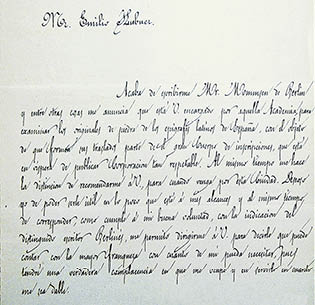 Mr. Emilio Hubner.
Acaba de escribirme Mr. Mommsen de Berlin
y entre otras cosas me anuncia que está V. encargado por aquella Academia, para
examinar los originales de piedra de los epígrafes latinos de España, con el objeto
de que formen sus traslados parte del gran Cuerpo de inscripciones, que está
en vispera de publicar Corporacion tan respetable. Al mismo tiempo me hace
la distincion de recomendarme á V. para cuando venga por esta Ciudad. Deseo
so de poder serle útil en lo poco que está á mis alcances y al mismo tiempo
de corresponder, como cumple á mi buena voluntad, con la indicacion del
distinguido escritor Berlinés, me permito dirigirme á V. para decirle que puede
contar con la mayor franqueza con cuanto de mi pueda necesitar, pues
tendré una verdadera complacencia en que me ocupe y en servirle en cuanto
me sea dable.